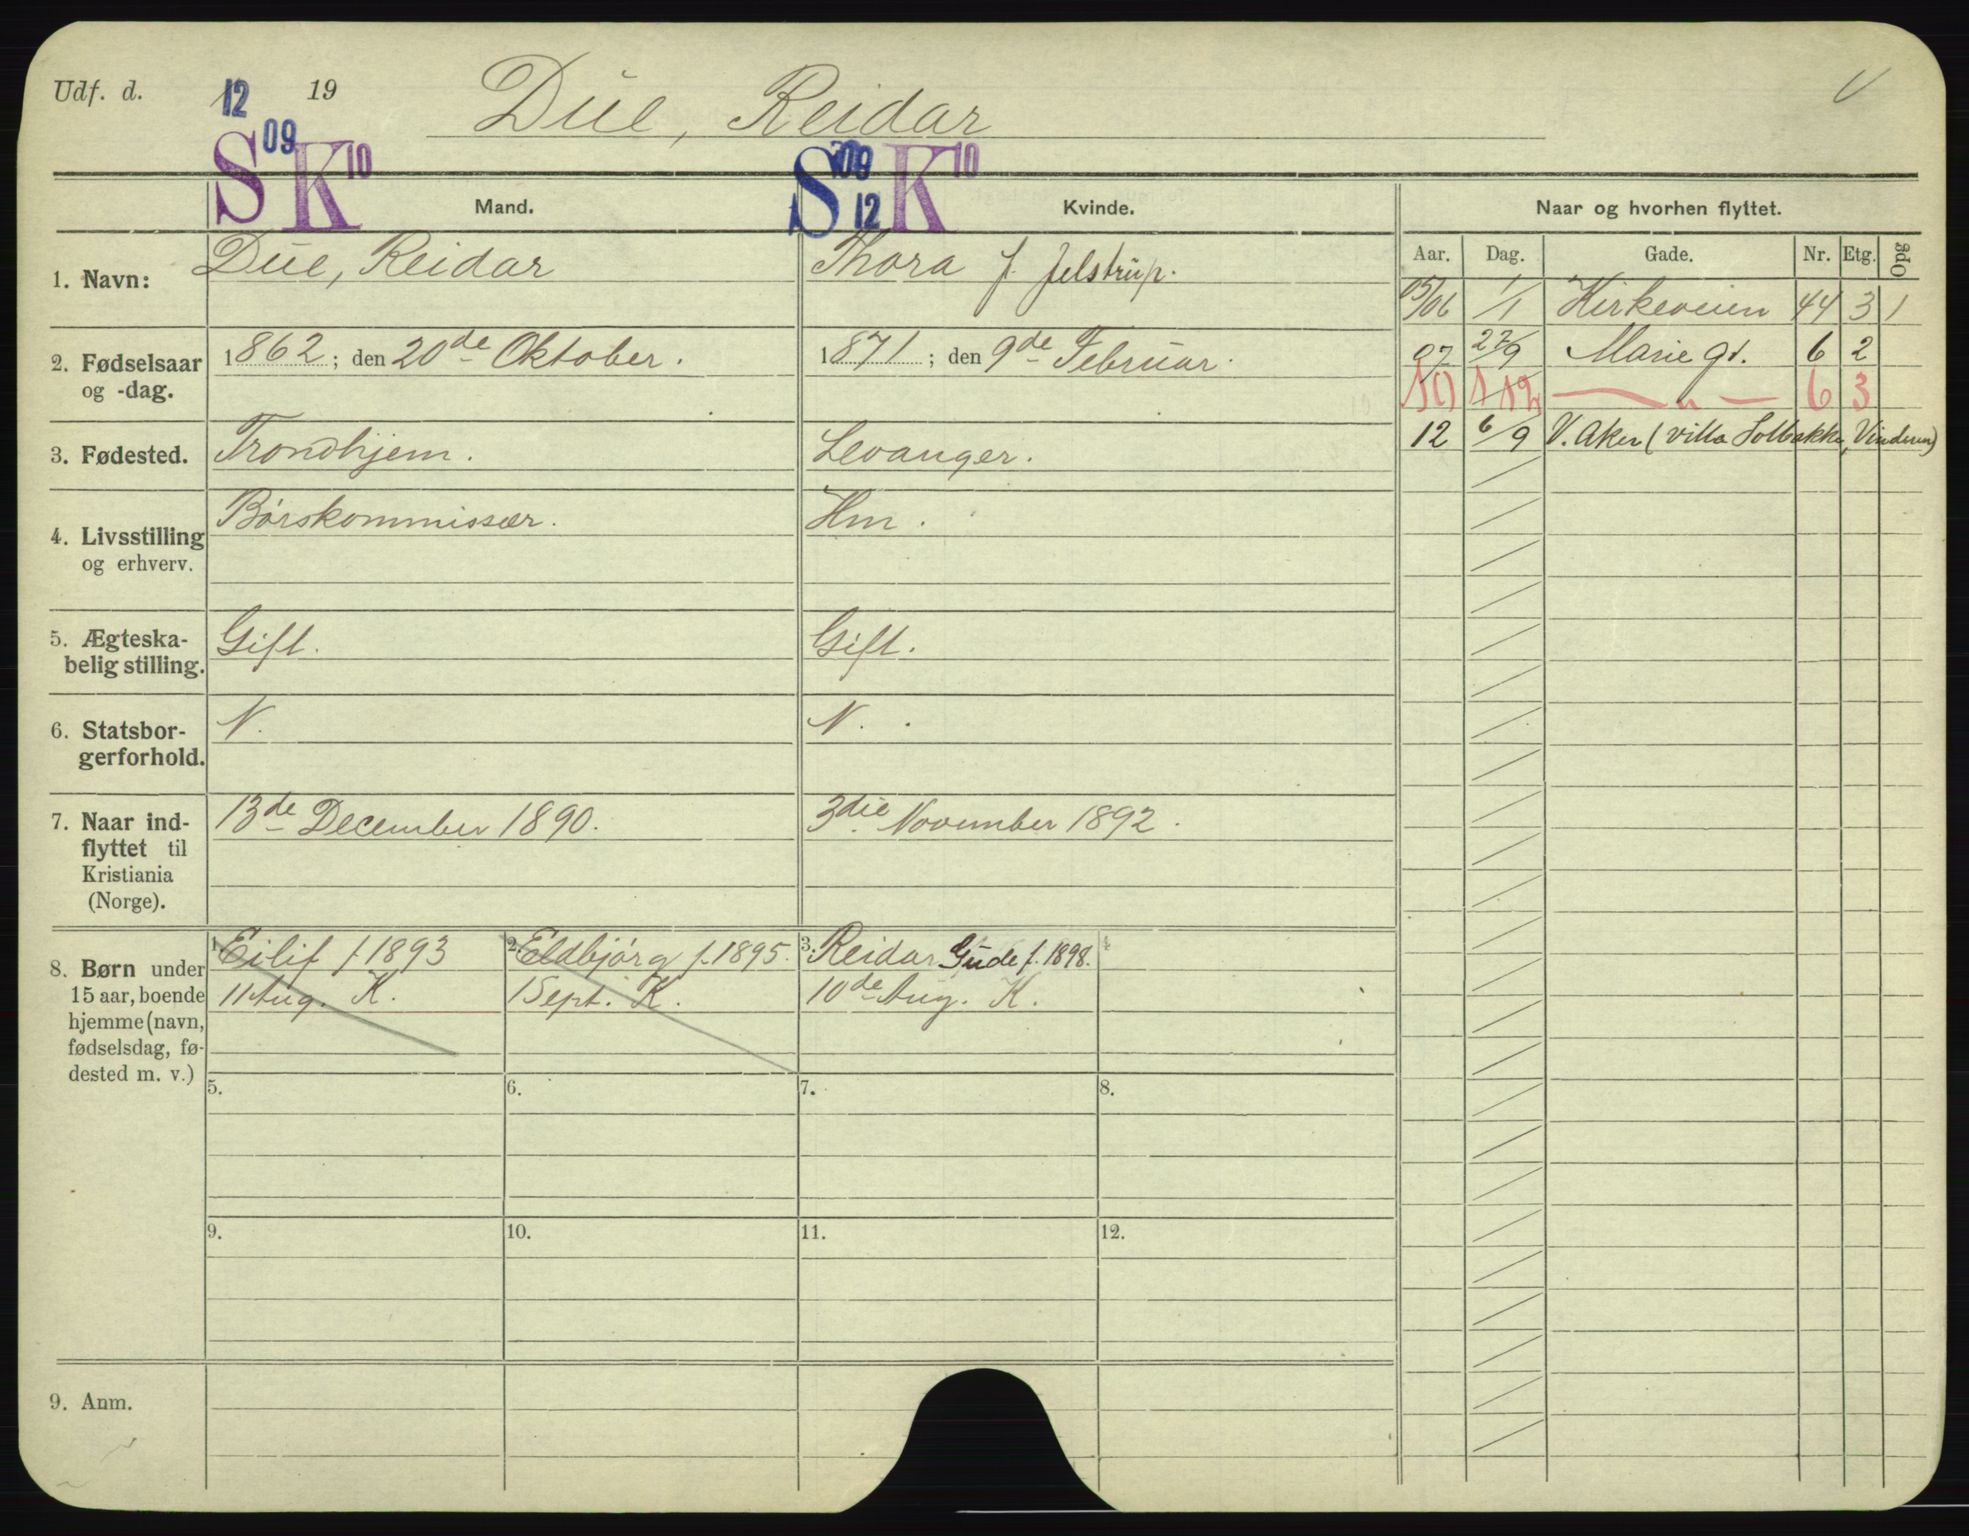 Udf. d. 12 19 Due, Reidar
S 09 K 10 S 09 12 K 10
Mand. Kvinde. Naar og hvorhen flyttet.
Aar. Dag. Gade. Nr. Etg. Opg
1. Navn: Due, Reidar Thora f. Jelstrup.
05/06 1/1 Kirkeveien 44 3 1
2. Fødselsaar og -dag. 1862; den 20de Oktober. 1871; den 9de Februar.
07 27/9 Marie gt. 6 2
10 1/12 — " — 6 3
12 6/9 V. Aker (villa Solbakke, Vinderen)
3. Fødested. Trondhjem. Levanger.
4. Livsstilling og erhverv. Børskommissær. Hm.
5. Ægteska-
belig stilling. Gift. Gift.
6. Statsbor-
gerforhold. N. N.
7. Naar ind-
flyttet til
Kristiania
(Norge). 13de December 1890. 3die November 1892.
8. Børn under
15 aar, boende
hjemme (navn,
fødselsdag, fø-
dested m. v.)
1. Eilif f. 1893
11 Aug. K.
2. Eldbjørg f. 1895.
1 Sept. K.
3. Reidar Gude f. 1898.
10de Aug. K.
4.
5. 6. 7. 8.
9. 10. 11. 12.
9. Anm.